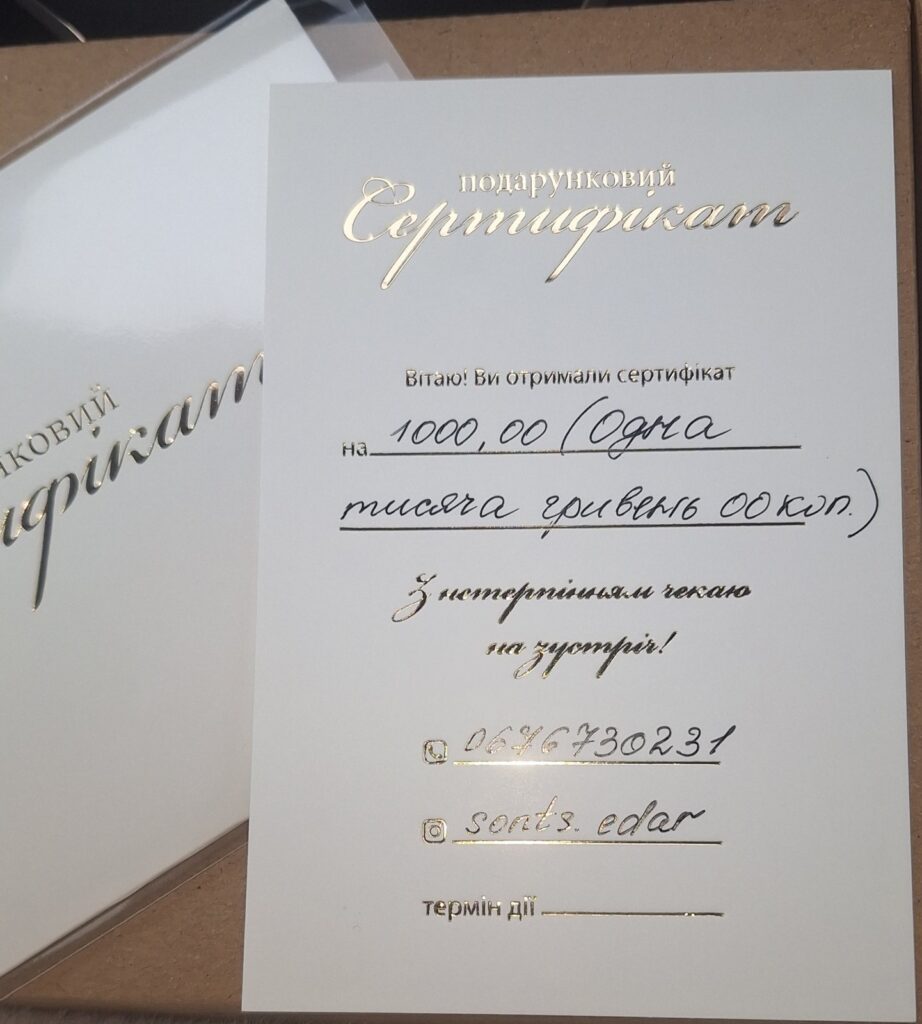 подарунковий
Сертифікат
Вітаю! Ви отримали сертифікат
на 1000,00 (Одна
тисяча гривень 00 коп.)
З нетерпінням чекаю
на зустріч!
0676730231
sonts.edar
термін дії
нковий
ифікат